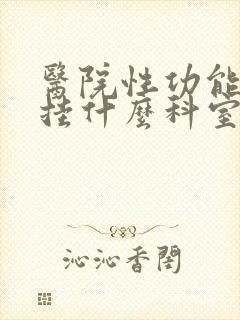 醫院性功能
挂什麼科室
沁沁香閣